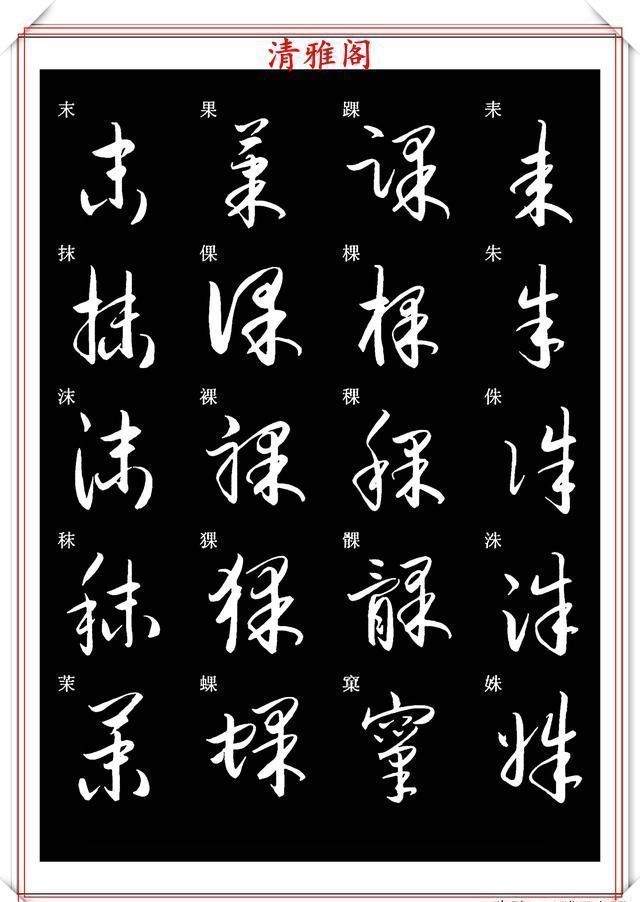 清雅阁
末 果 踝 耒
抹 倮 棵 朱
沫 裸 稞 侏
秣 猓 髁 洙
茉 蜾 窠 姝